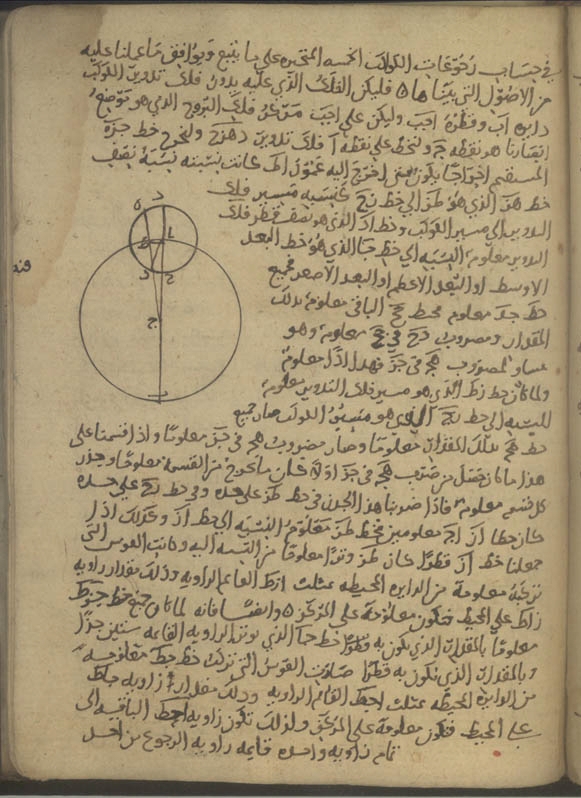 في حساب رجوعات الكواكب الخمسه المتحيره على ما يتبع ويوافق ما عملنا عليه
من الاصول التي بيناها فليكن الفلك الذي عليه يدور فلك تدوير الكوكب
دايره اب وقطره اجب وليكن على اجب مركز فلك البروج الذي هو موضع
ابصارنا هو نقطه ج ولنخط على نقطه ا فلك تدوير دهزح ولنخرج خط جزه
المستقيم اخراجا يكون متى اخرج اليه عمود اط كانت نسبته نسبة نصف
خط هز الذي هو طز الى خط زج كنسبه مسير فلك
التدوير الى مسير الكوكب وخط اد الذي هو نصف قطر فلك
التدوير معلوم النسبه الى خط جا الذي هو خط البعد
الاوسط او البعد الاعظم او البعد الاصغر فجميع
خط جد معلوم فخط جح الباقي معلوم بذلك
المقدار ومضروب دج في جح معلوم وهو
مساو لمضروب هج في جز فهذا اذا معلوم
ولما كان خط زط الذي هو مسير فلك التدوير معلوم
النسبه الى خط زج الذي هو مسير الكوكب صار جميع
خط هج بذلك المقدار معلوما وصار مضروب هج في جز معلوما واذا قسمنا على
هذا ما كان حصل من ضرب هج في جز اولا كان ما يخرج من القسمه معلوما وجذر
كل قسم معلوم فاذا ضربنا هذا الجذر في خط طز على حده وفي خط زج على حده
كان خطا از اج معلومين فخط طز معلوم النسبه الى خط از وكذلك اذا
جعلنا خط از قطرا كان طز وترا معلوما من النسبه اليه وكانت القوس التي
توتره معلومة من الدايره المحيطه بمثلث ازط القايم الزاويه وذلك مقدار زاويه
زاط على المحيط فتكون معلومة على المركز وايضا فانه لما كان جميع خط جزط
معلوما بالمقدار الذي يكون به قطر خط جا الذي يوتر الزاويه القايمه ستين جزا
وبالمقدار الذي يكون به قطرا صارت القوس التي توتر خط جط معلومه
من الدايره المحيطه بمثلث اجط القايم الزاويه وذلك مقدار زاويه جاط
على المحيط فتكون معلومة على المركز ولذلك تكون زاويه اجط الباقيه الى
تمام زاويه واحده قايمه زاويه الرجوع من اجل